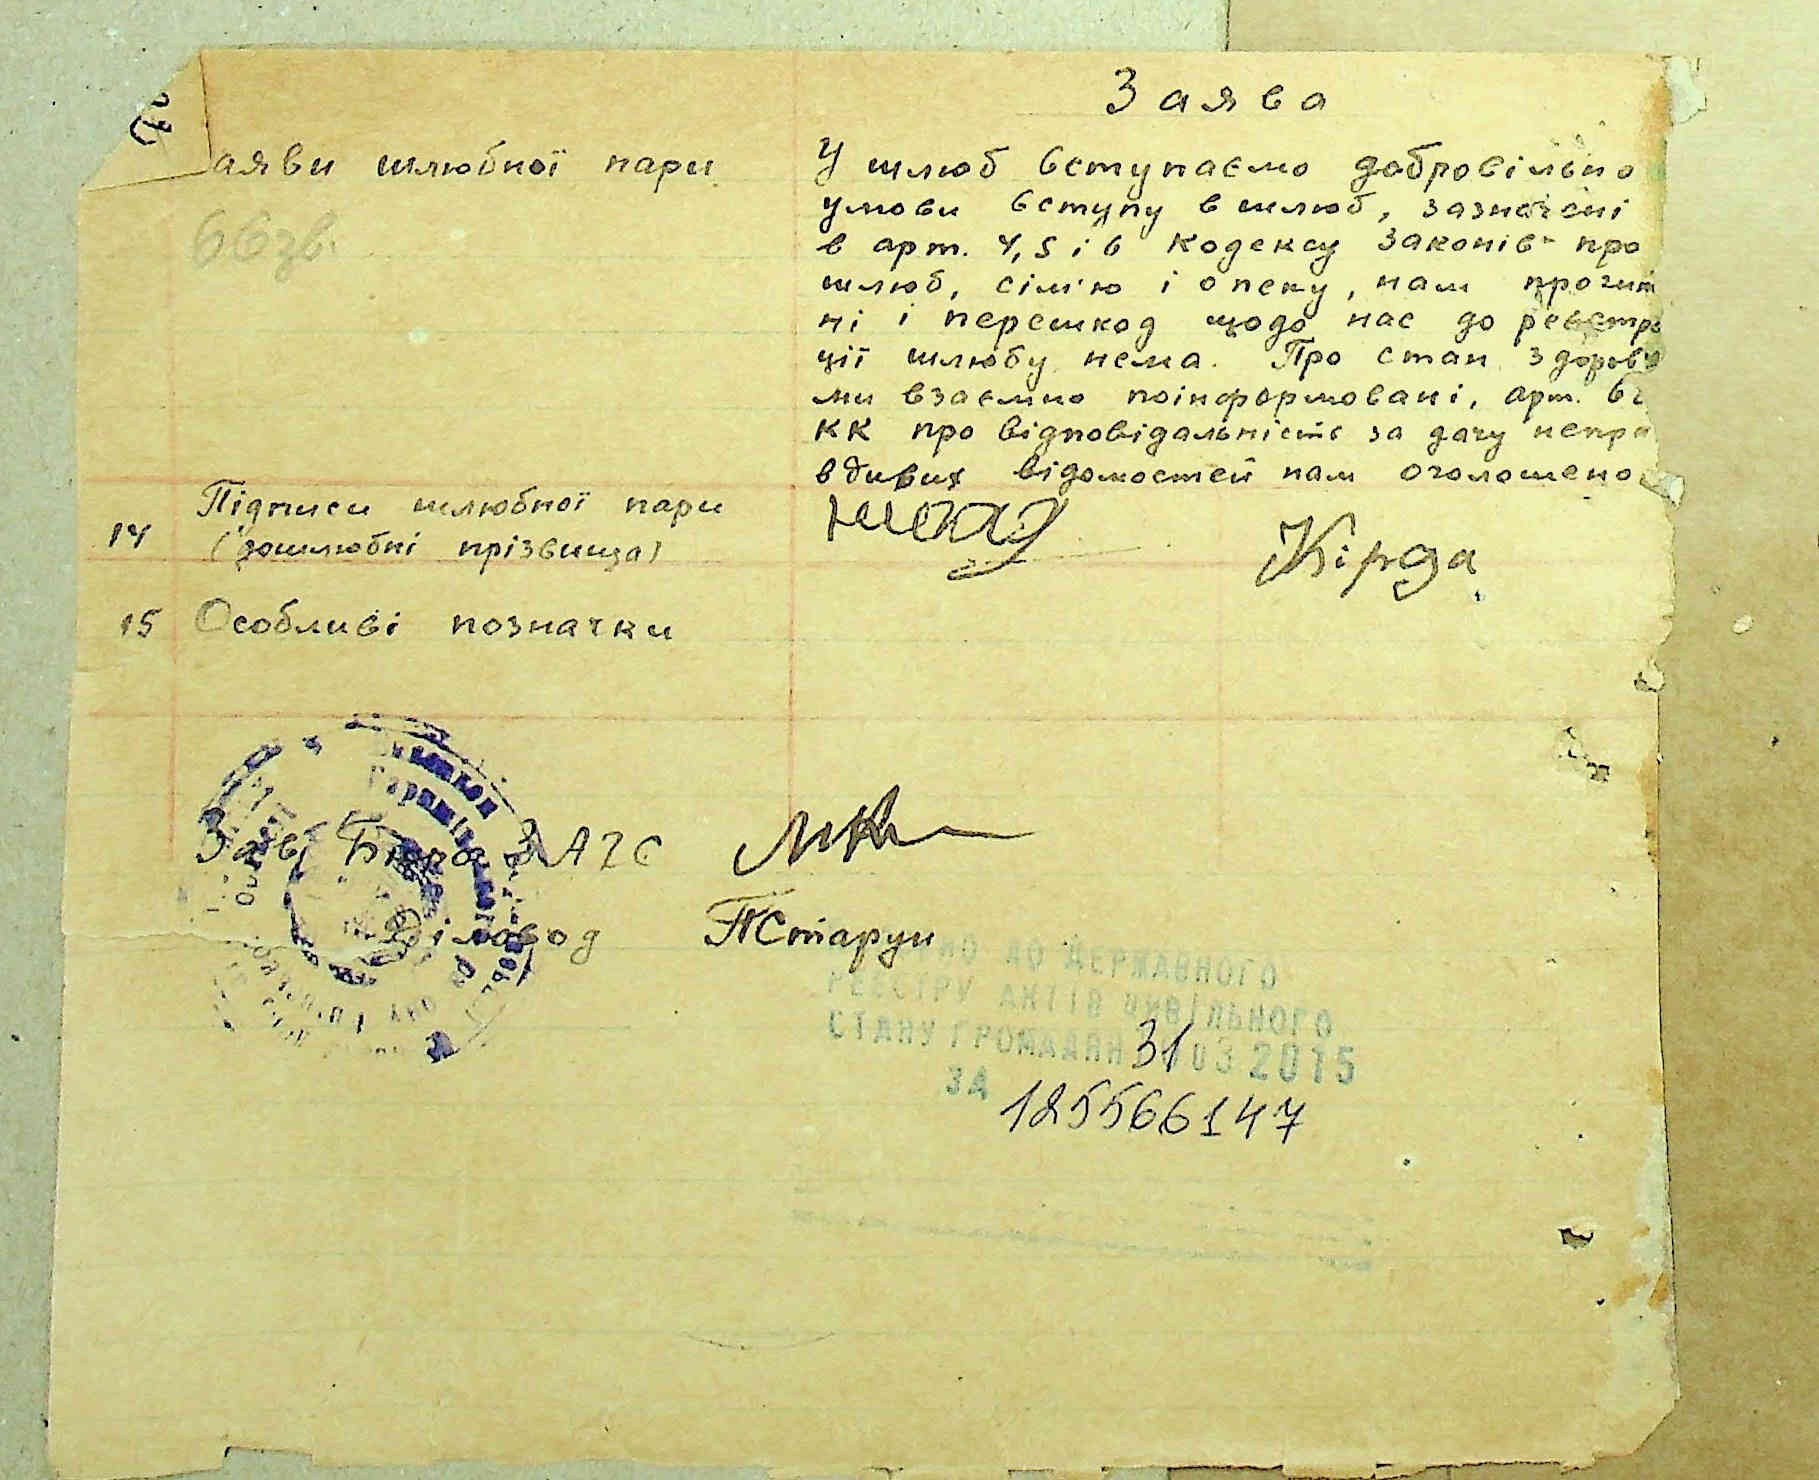 Заява
аяви шлюбної пари
У шлюб вступаємо добровільно
умови вступу в шлюб, зазначені
в арт. 4, 5 і 6 Кодексу Законів про
шлюб, сім'ю і опеку, нам прочит
ні і перешкод щодо нас до реєстра
ції шлюбу нема. Про стан здоров'я
ми взаємно поінформовані, арт.
КК про відповідальність за дачу непра
вдивих відомостей нам оголошено
66зв.
14 Підписи шлюбної пари
(дошлюбні прізвища)
Кірда
15 Особливі позначки
Зав. Бюро ЗАГС
Діловод ПСтарун
ДО ДЕРЖАВНОГО
РЕЄСТРУ АКТІВ ЦИВІЛЬНОГО
СТАНУ ГРОМАДЯН 31 03 2015
ЗА 125566147